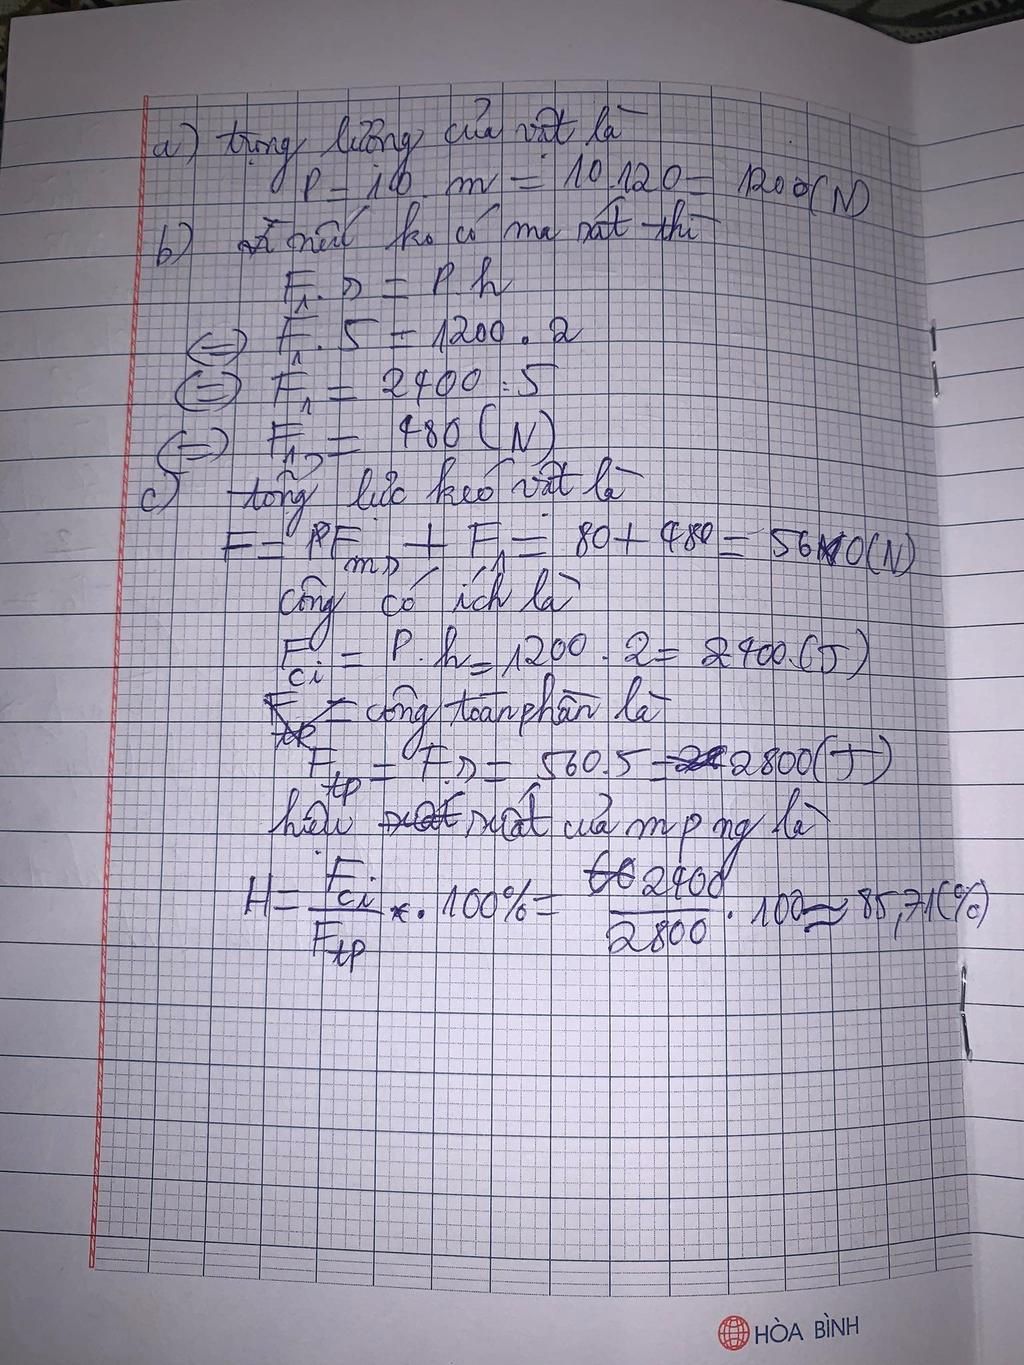 a) trọng lường của vật là
P = 10. m = 10.120 = 1200(N)
b) nếu ko có ma sát thì
F₁. s = P.h
(=) F₁. 5 = 1200 . 2
(=) F₁ = 2400 : 5
(=) F₁ = 480 (N)
c) tổng lực kéo vật là
F = Fms + F₁ = 80 + 480 = 560(N)
công có ích là
Fci = P.h = 1200 . 2 = 2400.(J)
công toàn phần là
Ftp = F.s = 560.5 = 2800(J)
hiệu suất của mp ng là
H = Fci / Ftp . 100% = 2400 / 2800 . 100 ≈ 85,71(%)
HÒA BÌNH